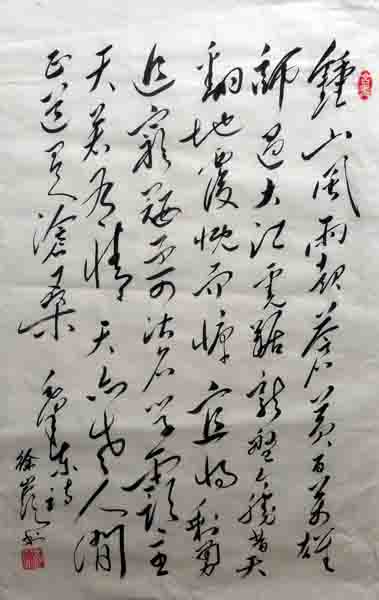 鍾山風雨起蒼黄百万雄
師过大江虎踞龍盤今勝昔天
翻地覆慨而慷宜将剩勇
追窮寇不可沽名学霸王
天若有情天亦老人間
正道是滄桑 毛澤東詩
徐书